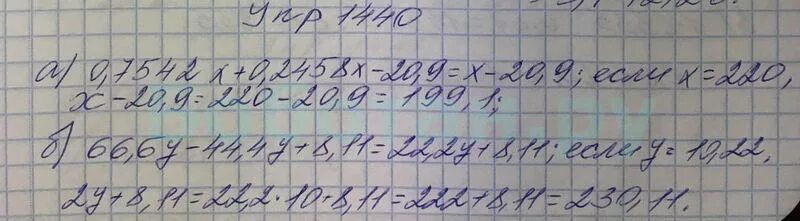 Упр 1440
а) 0,7542x+0,2458x-20,9=x-20,9; если x=220,
x-20,9=220-20,9=199,1;
б) 66,6y-44,4y+8,11=22,2y+8,11; если y=10,22,
2y+8,11=22,2·10+8,11=222+8,11=230,11.